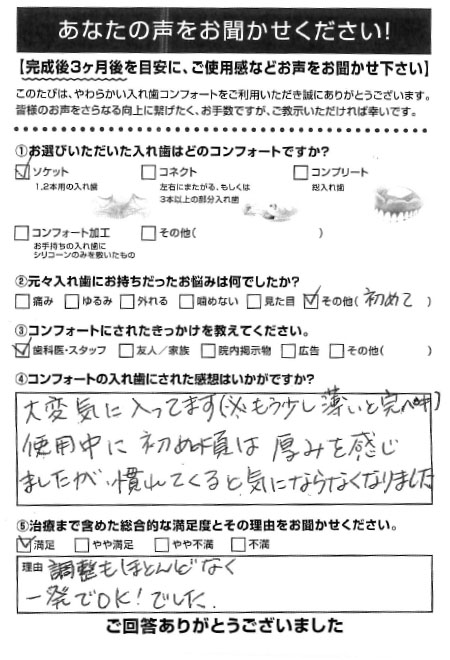 あなたの声をお聞かせください!
【完成後3ヶ月後を目安に、ご使用感などお声をお聞かせ下さい】
このたびは、やわらかい入れ歯コンフォートをご利用いただき誠にありがとうございます。
皆様のお声をさらなる向上に繋げたく、お手数ですが、ご教示いただければ幸いです。
①お選びいただいた入れ歯はどのコンフォートですか?
☑ソケット □コネクト □コンプリート
1,2本用の入れ歯 左右にまたがる、もしくは 総入れ歯
3本以上の部分入れ歯
□コンフォート加工 □その他( )
お手持ちの入れ歯に
シリコーンのみを敷いたもの
②元々入れ歯にお持ちだったお悩みは何でしたか?
□痛み □ゆるみ □外れる □噛めない □見た目 ☑その他(初めて)
③コンフォートにされたきっかけを教えてください。
☑歯科医・スタッフ □友人/家族 □院内掲示物 □広告 □その他( )
④コンフォートの入れ歯にされた感想はいかがですか?
大変気に入ってます(※もう少し薄いと完ペキ)
使用中に初め頃は厚みを感じ
ましたが慣れてくると気にならなくなりました
⑤治療まで含めた総合的な満足度とその理由をお聞かせください。
☑満足 □やや満足 □やや不満 □不満
理由 調整もほとんどなく
一発でOK!でした.
ご回答ありがとうございました